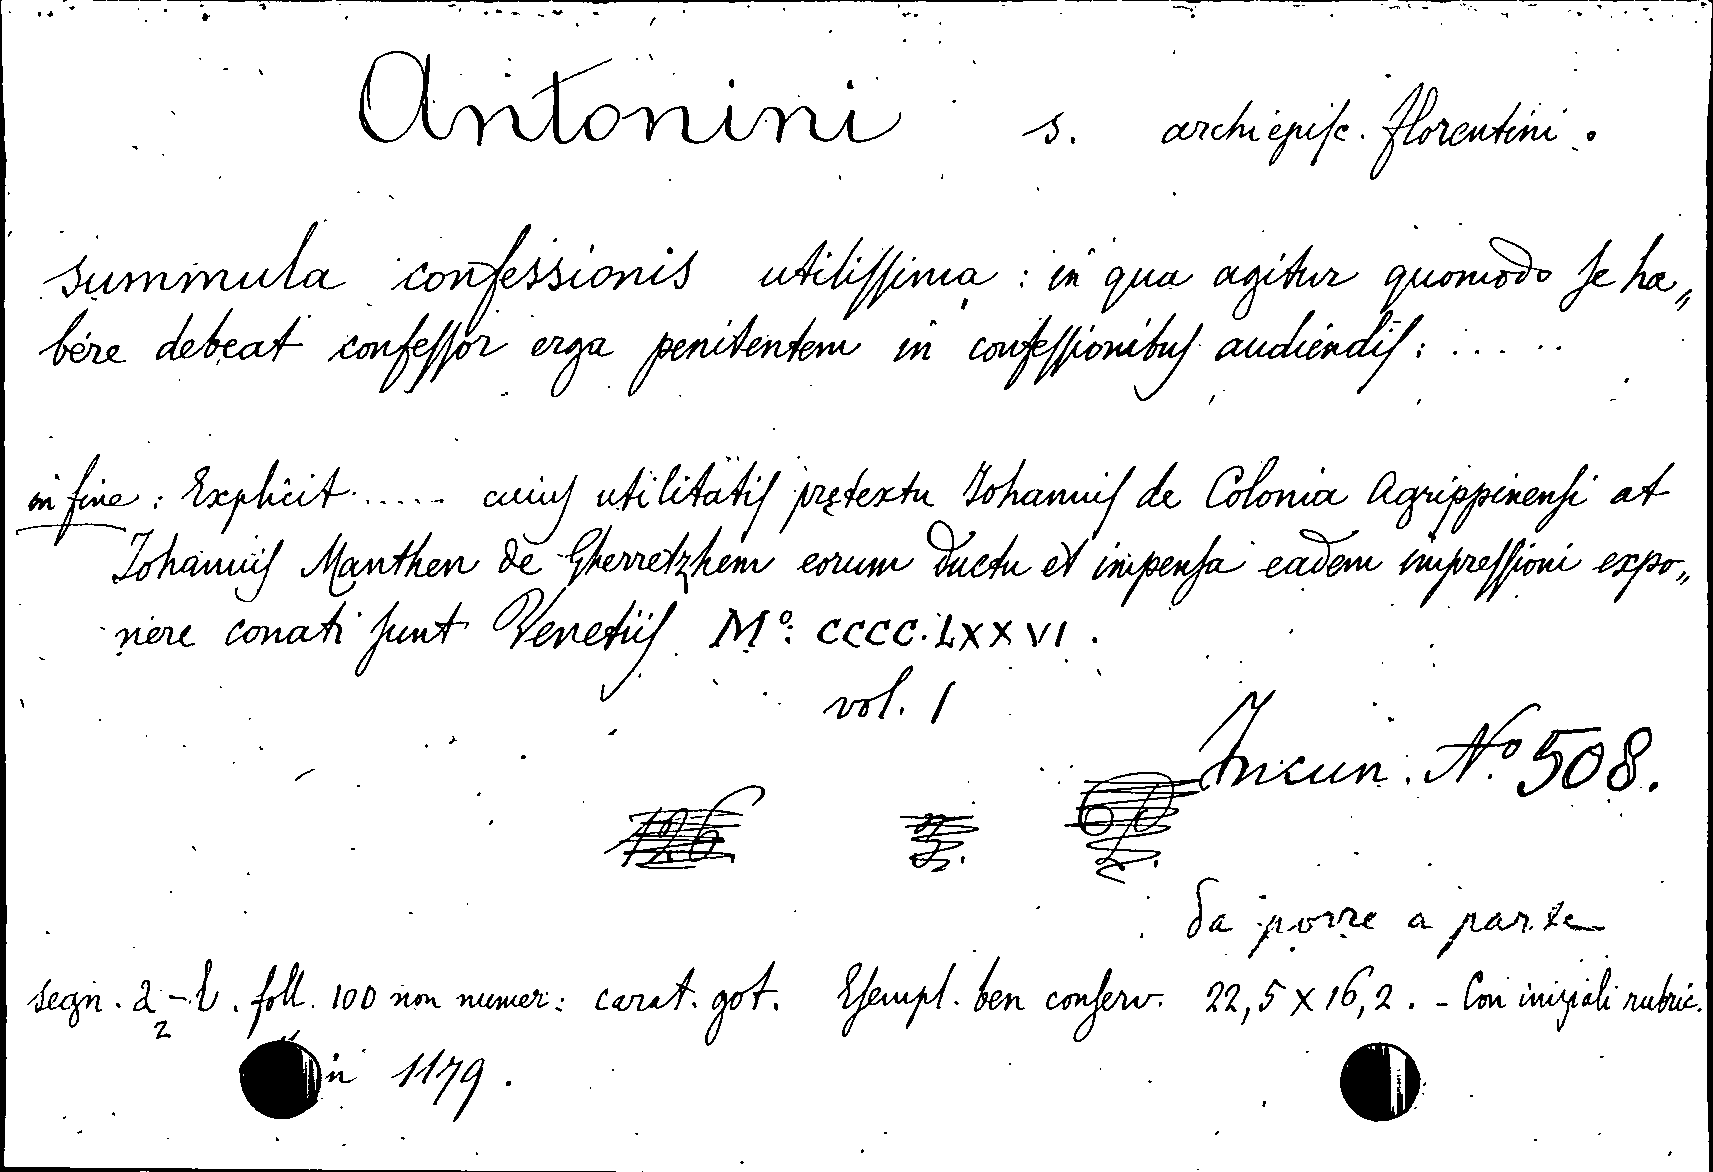 Antonini s. archiepisc. florentini.
summula confessionis utilissima: in qua agitur quomodo se ha„
bere debeat confessor erga penitentem in confessionibus audiendis: .....
in fine: Explicit ..... cuius utilitatis prętextu Iohannis de Colonia Agrippinensi at
Iohannis Manthen de Gherretzhem eorum ductu et inpensa eadem impressioni expo„
nere conati sunt Venetiis Mº: CCCC.LXXVI.
vol. 1
Incun. Nº 508.
126. 3.
da porre a parte
segn. a2 - l. foll. 100 non numer: carat. got. Esempl. ben conserv. 22,5 x 16,2. - Con iniziali rubric.
1179.